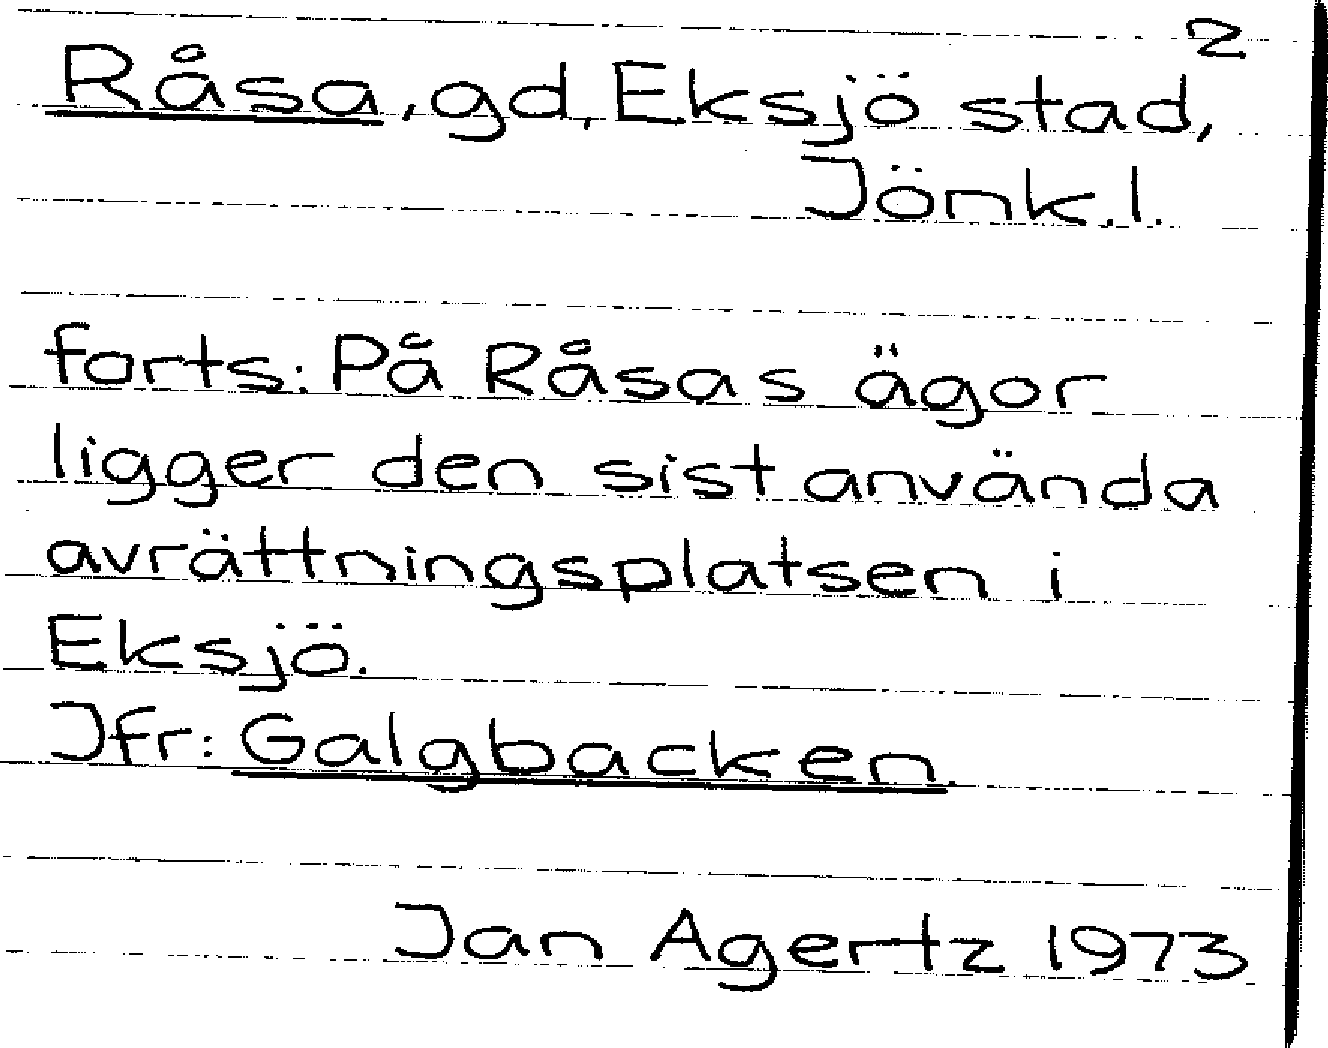 2
Råsa, gd, Eksjö stad,
Jönk.l.
forts: På Råsas ägor
ligger den sist använda
avrättningsplatsen i
Eksjö.
Jfr: Galgbacken.
Jan Agertz 1973